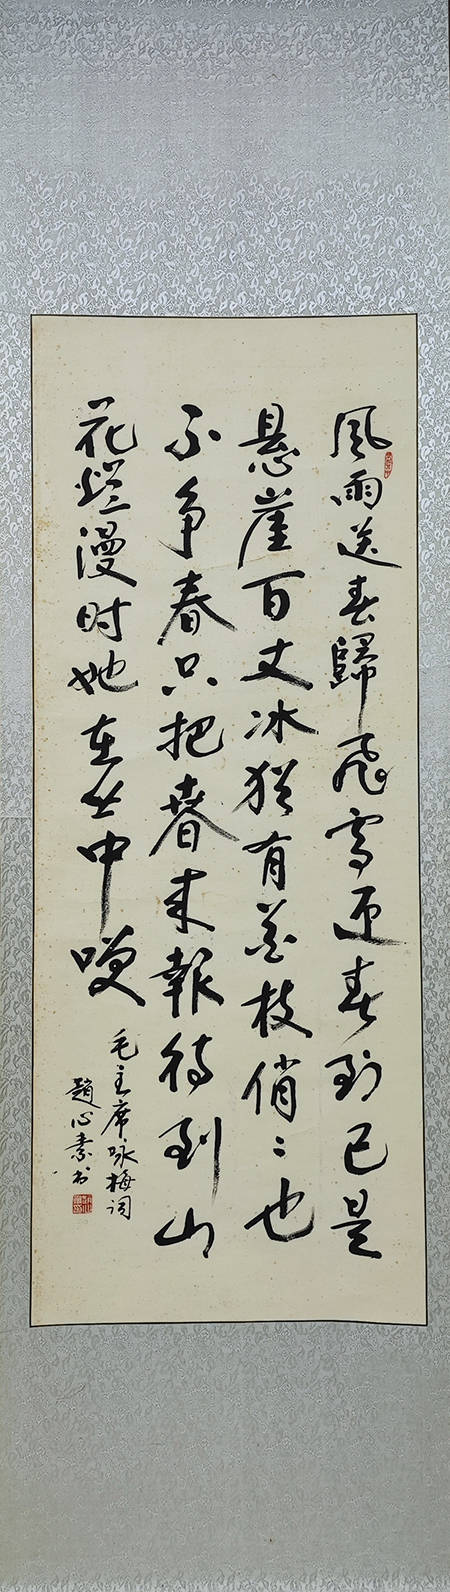 風雨送春歸飛雪迎春到已是
悬崖百丈冰猶有花枝俏〻也
不争春只把春来報待到山
花爛漫时她在丛中咲
毛主席咏梅词
趙心素书